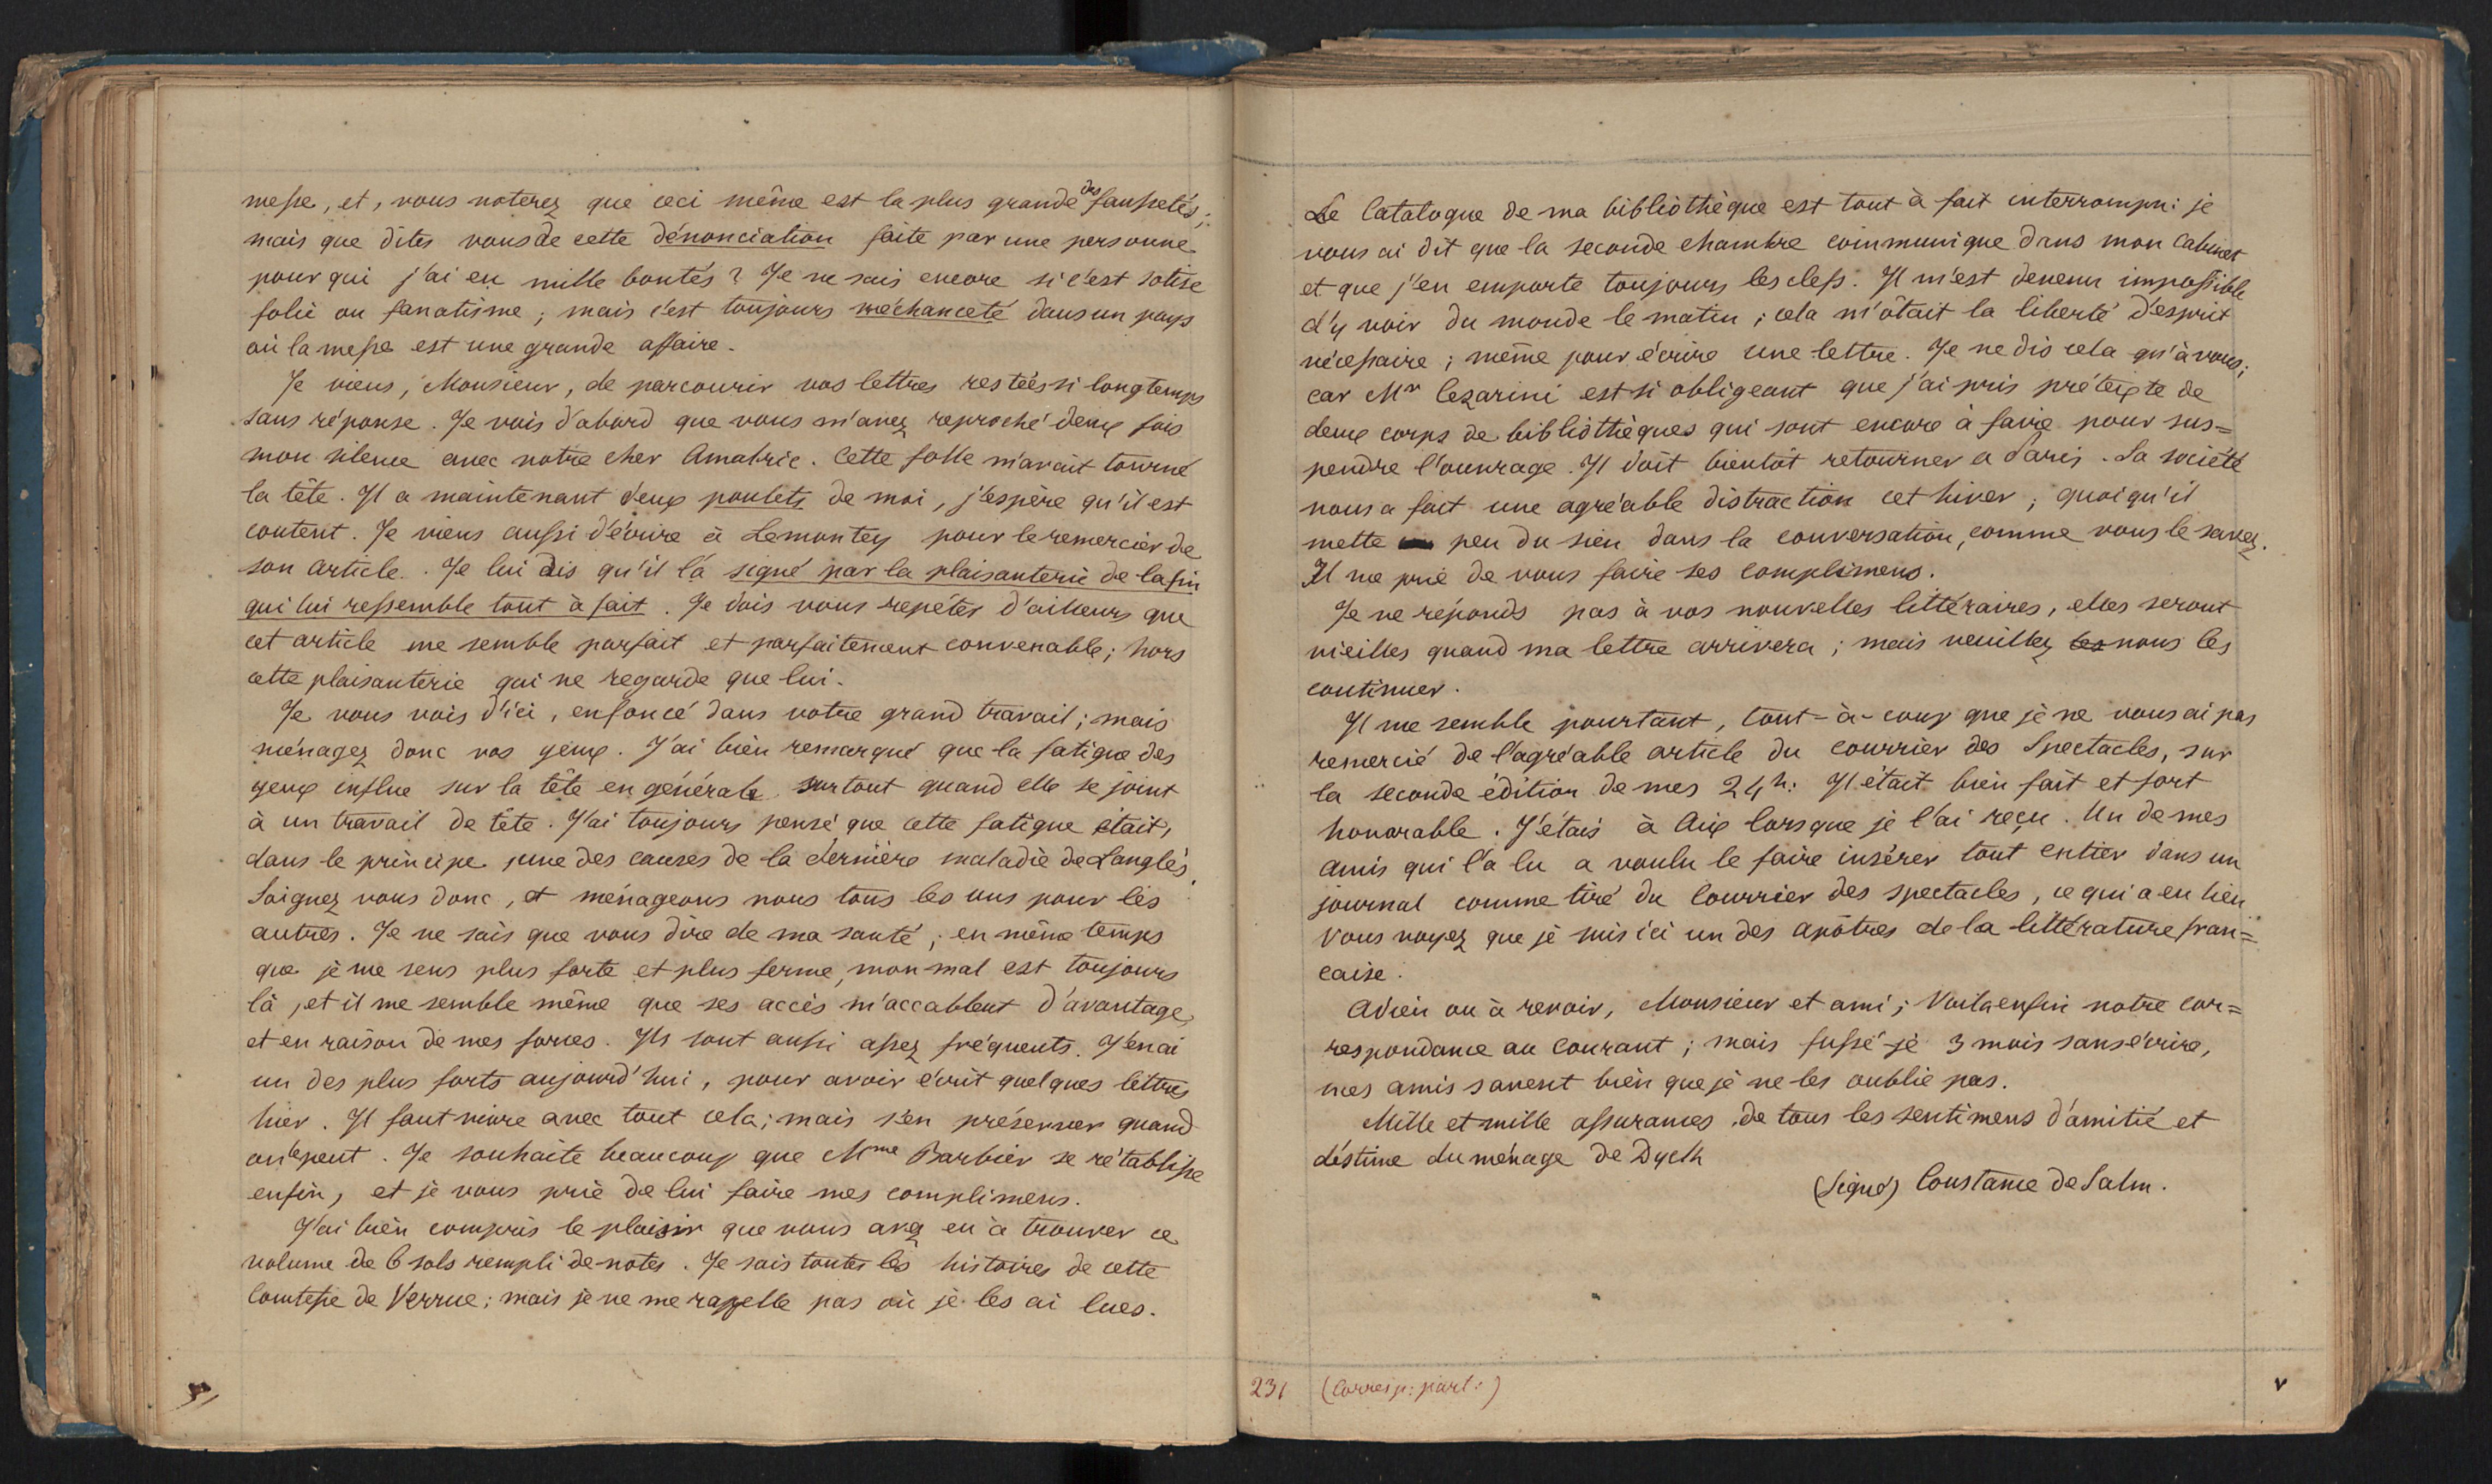 messe, et, vous noterez que ceci même est la plus grande des faussetés;
mais que dites vous de cette dénonciation faite par une personne
pour qui j'ai eu mille bontés? Je ne sais encore si c'est sotise
folie ou fanatisme; mais c'est toujours méchanceté dans un pays
où la messe est une grande affaire.
Je viens, Monsieur, de parcourir vos lettres restées si longtemps
sans réponse. Je vois d'abord que vous m'avez reproché deux fois
mon silence avec notre cher Amalric. Cette folle m'avait tourné
la tête. Il a maintenant deux poulets de moi, j'espère qu'il est
content. Je viens aussi d'écrire à Lemontey pour le remercier de
son article. Je lui dis qu'il l'a signé par la plaisanterie de la fin
qui lui ressemble tout à fait. Je dois vous repéter d'ailleurs que
cet article me semble parfait et parfaitement convenable; hors
cette plaisanterie qui ne regarde que lui.
Je vous vois d'ici, enfoncé dans votre grand travail; mais
ménagez donc vos yeux. J'ai bien remarqué que la fatigue des
yeux influe sur la tête en générale surtout quand elle se joint
à un travail de tête. J'ai toujours pensé que cette fatigue était,
dans le principe, une des causes de la dernière maladie de Langlès.
Soignez vous donc, et ménageons nous tous les uns pour les
autres. Je ne sais que vous dire de ma santé; en même temps
que je me sens plus forte et plus ferme, mon mal est toujours
là, et il me semble même que ses accès m'accablent d'avantage,
et en raison de mes forces. Ils sont aussi assez fréquents. J'en ai
un des plus forts aujourd'hui, pour avoir écrit quelques lettres
hier. Il faut vivre avec tout cela; mais s'en préserver quand
on le peut. Je souhaite beaucoup que Mme Barbier se rétablisse
enfin, et je vous prie de lui faire mes complimens.
J'ai bien compris le plaisir que vous avez eu à trouver ce
volume de 6 sols rempli de notes. Je sais toutes les histoires de cette
Comtesse de Verrue; mais je ne me rappelle pas où je les ai lues.
Le Catalogue de ma bibliothèque est tout à fait interrompu: je
vous ai dit que la seconde chambre communique dans mon Cabinet
et que j'en emporte toujours les clefs. Il m'est devenu impossible
d'y voir du monde le matin; cela m'ôtait la liberté d'esprit
nécessaire; même pour écrire une lettre. Je ne dis cela qu'à vous;
car Mr Cezarini est si obligeant que j'ai pris prétexte de
deux corps de bibliothèques qui sont encore à faire pour sus=
pendre l'ouvrage. Il doit bientôt retourner a Paris. Sa société
nous a fait une agréable distraction cet hiver; quoiqu'il
mette peu du sien dans la conversation, comme vous le savez.
Il me prie de vous faire ses complimens.
Je ne réponds pas à vos nouvelles littéraires, elles seront
vieilles quand ma lettre arrivera; mais veuillez les nous les
continuer.
Il me semble pourtant, tout-à-coup que je ne vous ai pas
remercié de l'agréable article du courrier des Spectacles, sur
la seconde édition de mes 24h: Il était bien fait et fort
honorable. J'étais à Aix lorsque je l'ai reçu. Un de mes
amis qui l'a lu a voulu le faire insérer tout entier dans un
journal comme tiré du Courrier des spectacles, ce qui a eu lieu
Vous voyez que je suis ici un des apôtres de la littérature fran=
caise.
Adieu ou à revoir, Monsieur et ami; Voila enfin notre cor=
respondance au Courant; mais fussé-je 3 mois sans écrire,
mes amis savent bien que je ne les oublie pas.
Mille et mille assurances de tous les sentimens d'amitié et
d'estime du ménage de Dyck
(Signé) Constance de Salm.
231 (Corresp: part:)